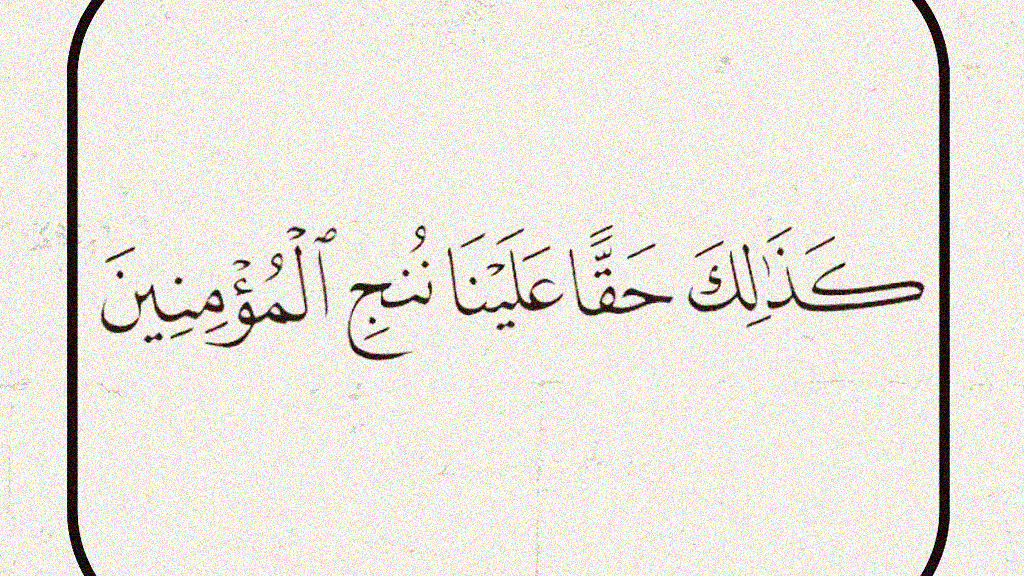 كَذَٰلِكَ حَقًّا عَلَيْنَا نُنجِ ٱلْمُؤْمِنِينَ